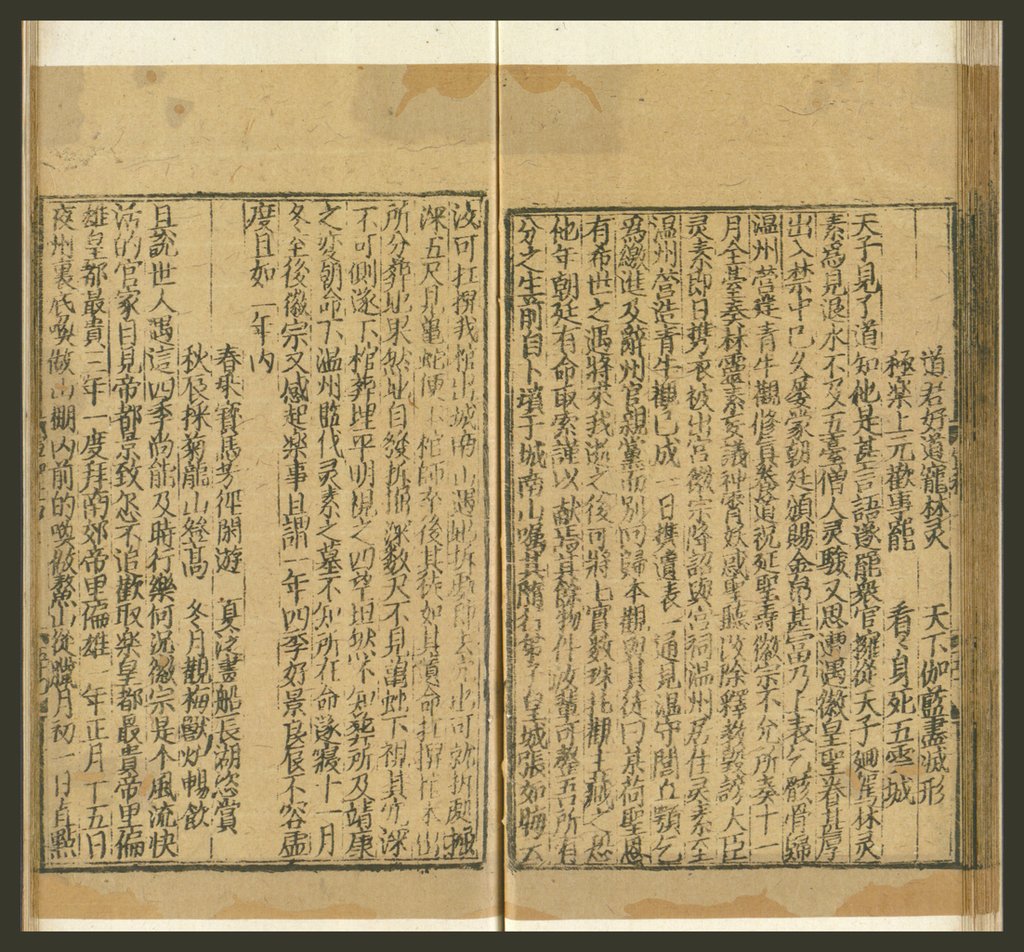 道君好道寵林灵　天下伽藍盡滅形
極楽上元歡事罷　看身死五雲城
天子見了道知他是甚言語遂罷衆官擁從天子廽駕林灵
素為見退水不又五臺僧人灵駿又思遭遇徽皇聖眷甚厚
出入禁中已久屡蒙朝廷頒賜金帛甚富乃上表乞骸骨歸
温州营建青牛觀修真養道祝延聖壽徽宗不允所奏十一
月全臺奏林靈素妄議神霄妖惑聖聽改除釋教毀謗大臣
灵素即日携衣被出宫徽宗降詔與宫祠温州居住灵素至
温州营造青牛觀已成一日携遺表一通見温守閭丘顎乞
為繳進及辭州官親黨而别回歸本觀
有希世之遇將來我逝之後可將上賞
他年朝廷有命取索謹以献其餘物件
分之生前自卜墳于城南山嘱其隨行弟子皇城張如晦
汝可扛擡我棺出城南山遇
深五尺見亀蛇便下棺師卒後其徒如其
所分葬地果然地自發拆掘深数尺不見亀虵下視其穴深
不可側遂下棺葬埋平明視之四望坦然不知葬所及靖康
之変朝命下温州監伐灵素之墓不知所在命遂寝十一月
冬至後徽宗又感起楽事且謂一年四季好景良辰不容虚
度且如一年内
春乗寶馬芳徑閒遊　夏泛畫船長湖恣賞
秋辰採菊龍山登髙　冬月觀梅獸炒暢飲
且說世人遇這四季尚能及時行樂何況徽宗是个風流快
活的官家目見帝都景致怎不追歡取楽皇都最貴帝里偏
雄皇都最貴三年一度拜南郊帝里偏雄一年正月十五日
夜州裏底喚做山棚内前的喚做鰲山從臘月初一日直點